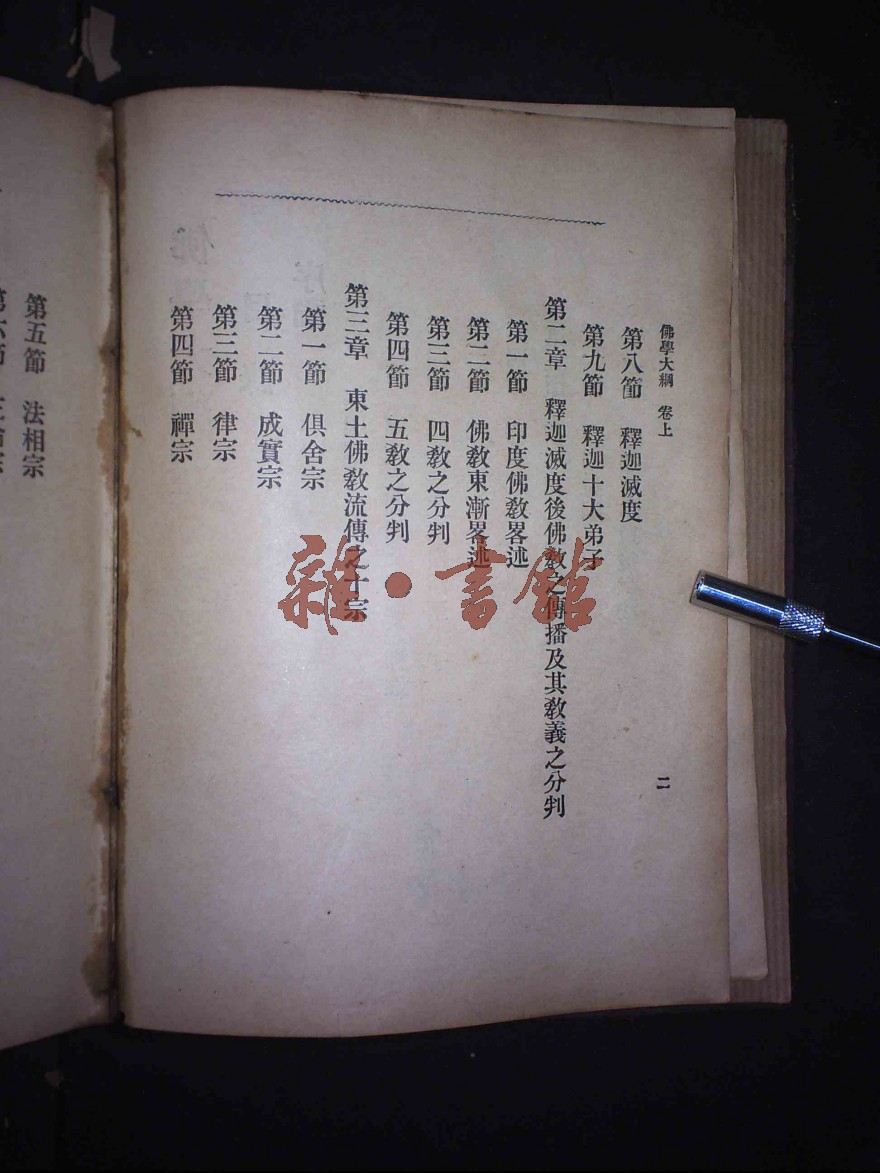 佛學大綱 卷上
二
第八節 釋迦滅度
第九節 釋迦十大弟子
第二章 釋迦滅度後佛教之傳播及其教義之分判
第一節 印度佛教畧述
第二節 佛教東漸畧述
第三節 四教之分判
第四節 五教之分判
第三章 東土佛教流傳之十宗
第一節 俱舍宗
第二節 成實宗
第三節 律宗
第四節 禪宗
第五節 法相宗
雜·書館